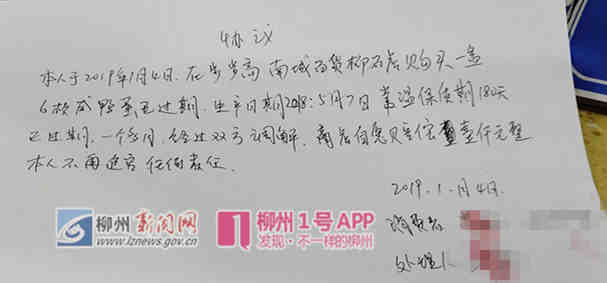 协议
本人于2019年1月4日在步步高南城百货柳石店购买一盒
6枚咸鸭蛋已过期，生产日期2018：5月7日常温保质期180天
已过期，一个多月，经过双方调解，商店自愿赔偿壹仟元整
本人不再追究任何责任。
2019.1.月4日.
消费者
处理人
柳州新闻网
www.lznews.gov.cn
柳州1号APP
发现·不一样的柳州